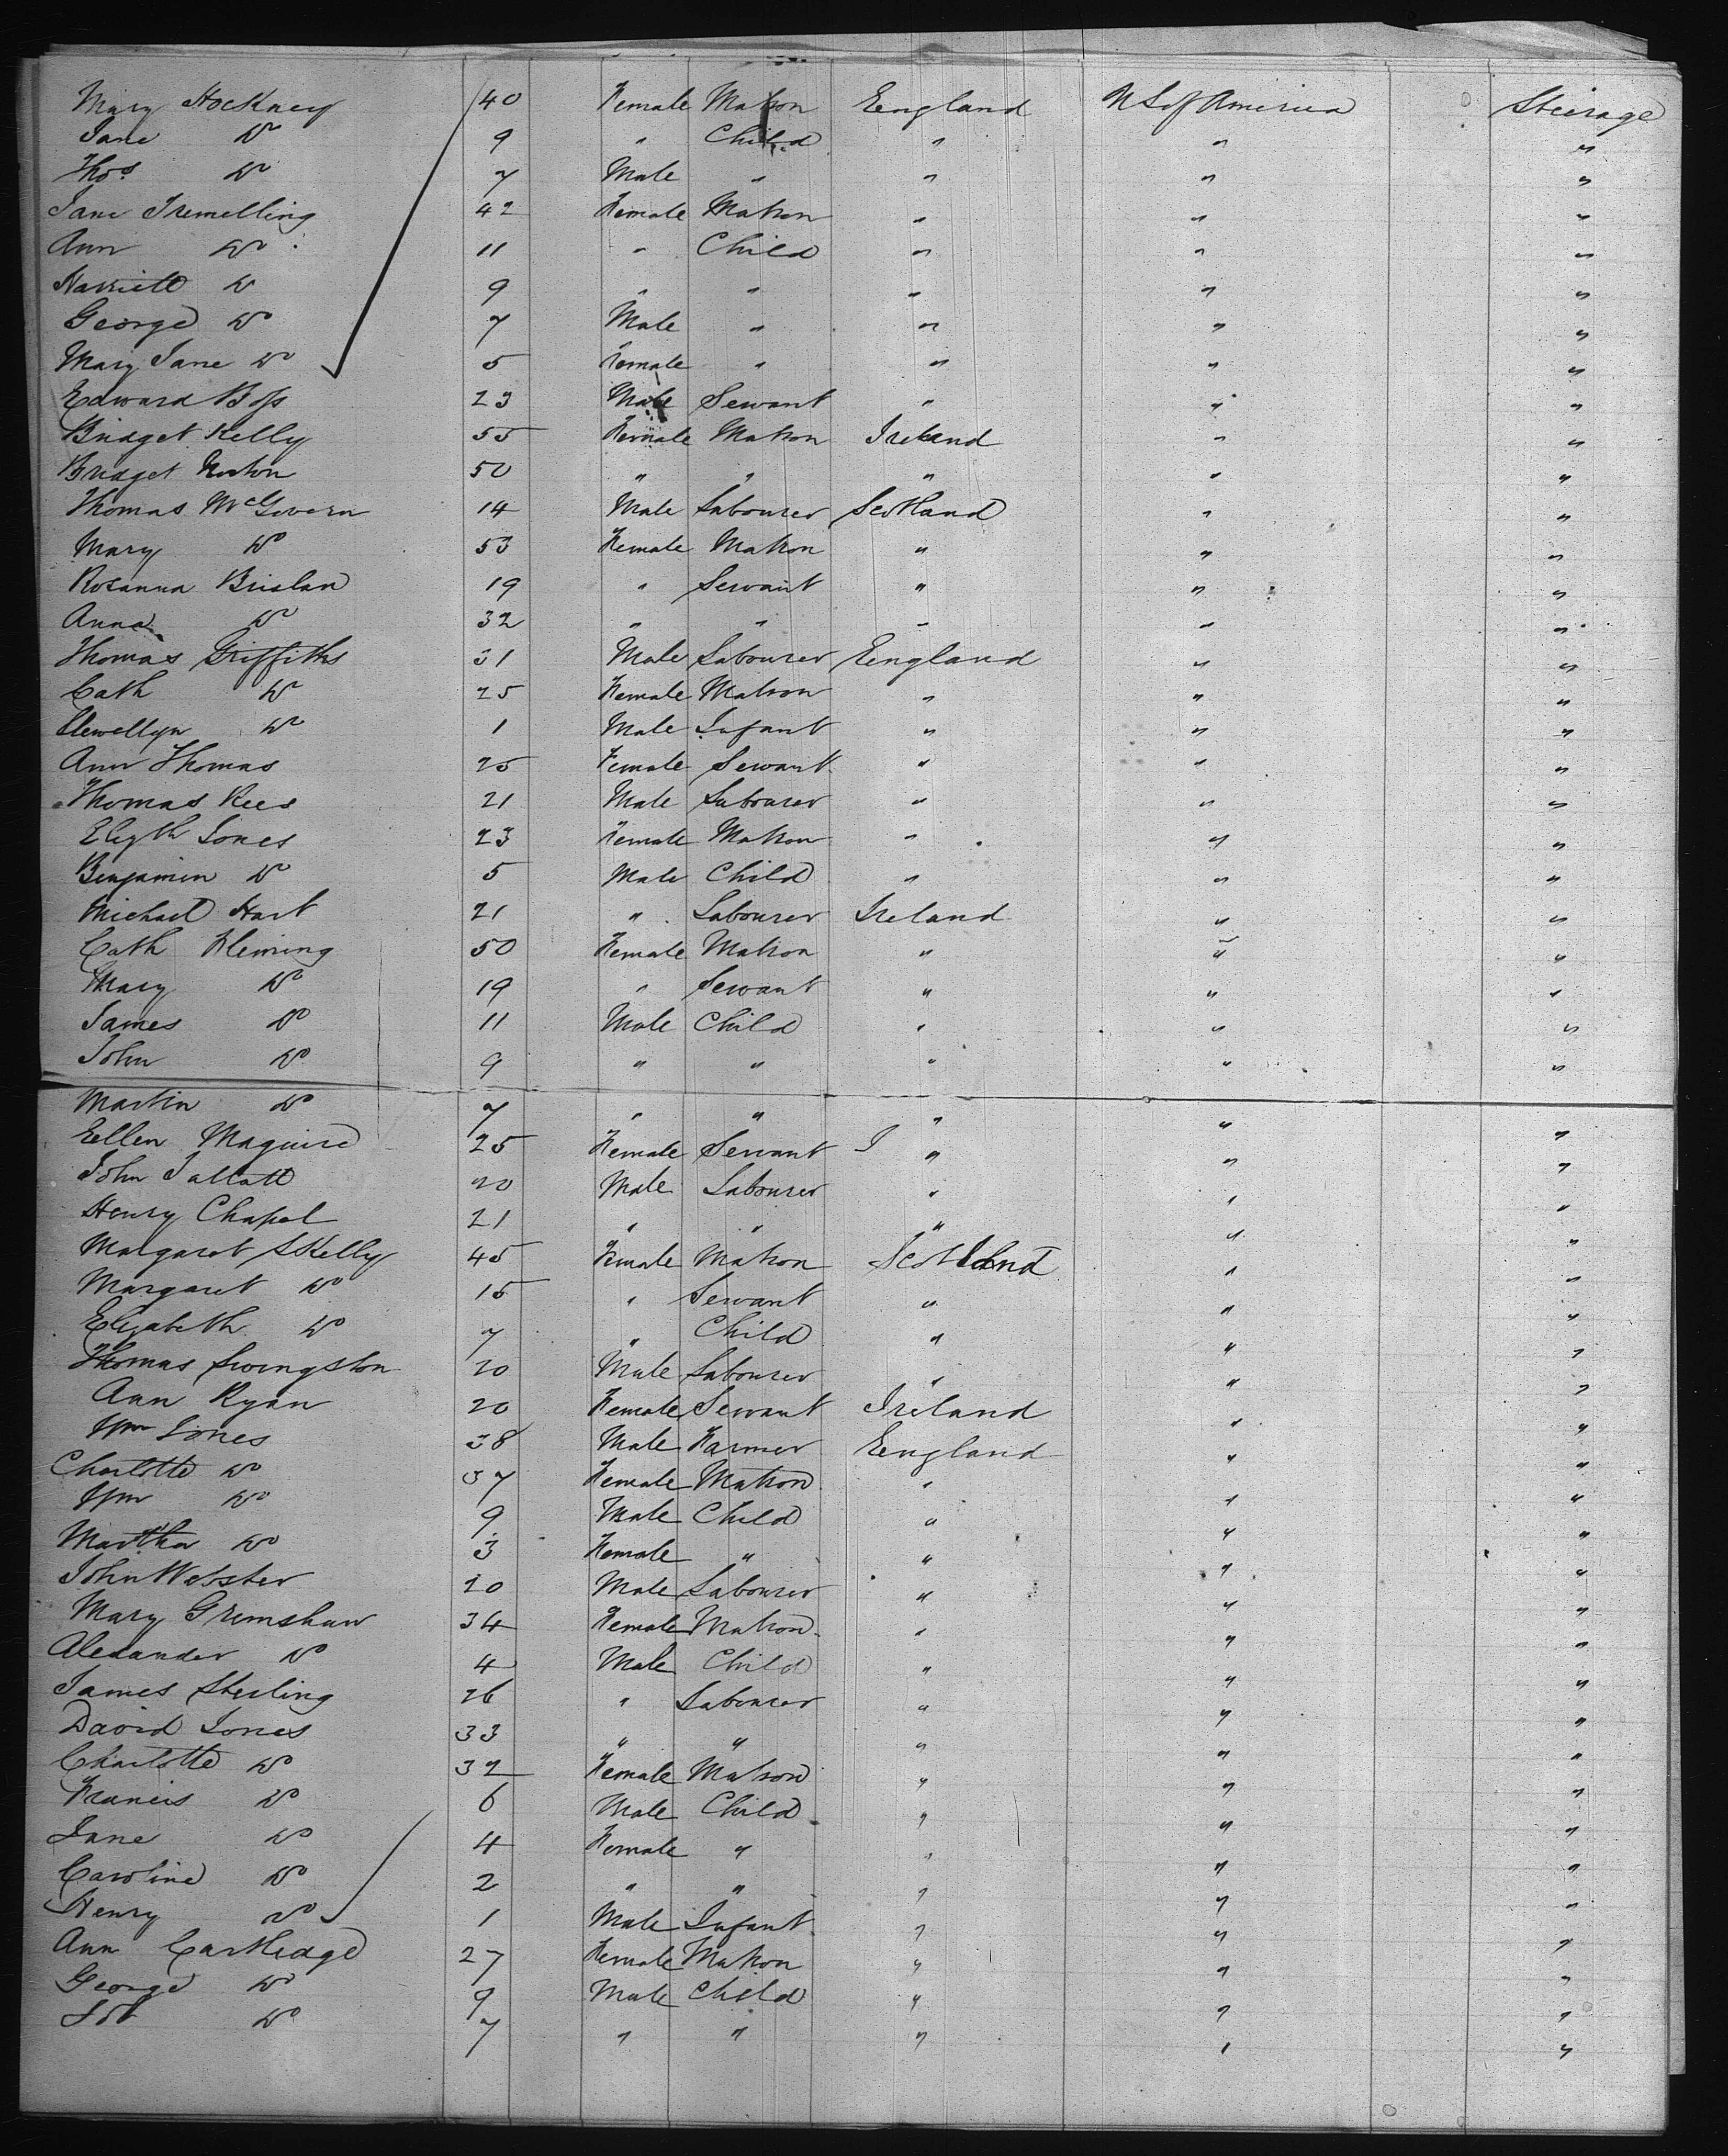 Mary Hockney 40 Female Matron England U S of America Steerage
Jane Do 9 " Child " " "
Thos Do 7 Male " " " "
Jane Tremelling 42 Female Matron " " "
Ann Do 11 " Child " " "
Harriett Do 9 " " " " "
George Do 7 Male " " " "
Mary Jane Do 5 Female " " " "
Edward Boss 23 Male Servant " " "
Bridget Kelly 55 Female Matron Ireland " "
Bridget Norton 50 " " " " "
Thomas McGovern 14 Male Labourer Scotland " "
Mary Do 53 Female Matron " " "
Rosanna Brislan 19 " Servant " " "
Anna Do 32 " " " " "
Thomas Griffiths 31 Male Labourer England " "
Cath Do 25 Female Matron " " "
Llewellyn Do 1 Male Infant " " "
Ann Thomas 25 Female Servant " " "
Thomas Rees 21 Male Labourer " " "
Elizth Jones 23 Female Matron " " "
Benjamin Do 5 Male Child " " "
Michael Hart 21 " Labourer Ireland " "
Cath Fleming 50 Female Matron " " "
Mary Do 19 " Servant " " "
James Do 11 Male Child " " "
John Do 9 " " " " "
Martin Do 7 " " " " "
Ellen Maguire 25 Female Servant " " "
John 20 Male Labourer " " "
Henry Chapel 21 " " " " "
Margaret Skelly 45 Female Matron Scotland " "
Margaret Do 15 " Servant " " "
Elizabeth Do 7 " Child " " "
Thomas Livingston 20 Male Labourer " " "
Ann Ryan 20 Female Servant Ireland " "
Wm Jones 38 Male Farmer England " "
Charlotte Do 37 Female Matron " " "
Wm Do 9 Male Child " " "
Martha Do 3 Female " " " "
John Webster 20 Male Labourer " " "
Mary Grimshaw 34 Female Matron " " "
Alexander Do 4 Male Child " " "
James Sterling 26 " Labourer " " "
David Jones 33 " " " " "
Charlotte Do 32 Female Matron " " "
Francis Do 6 Male Child " " "
Jane Do 4 Female " " " "
Caroline Do 2 " " " " "
Henry Do 1 Male Infant " " "
Ann Cartledge 27 Female Matron " " "
George Do 9 Male Child " " "
Do 7 " " " " "